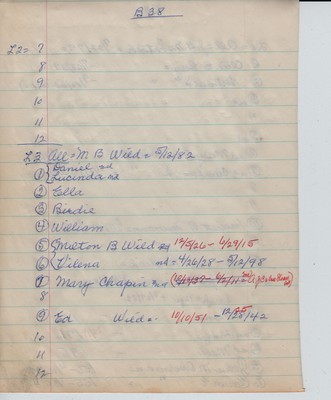 B 38
L2 = 7
8
9
10
11
12
L3 All = M B Wild = 5/12/82
① Daniel nd
Lucinda nd
② Ella
③ Birdie
④ William
⑤ Milton B Wild 12/5/26 - 4/29/15
⑥ Filena nd = 4/26/28 - 5/12/98
⑦ Mary Chapin
8
⑨ Ed Wild = 10/10/51 - 12/25/42
10
11
12